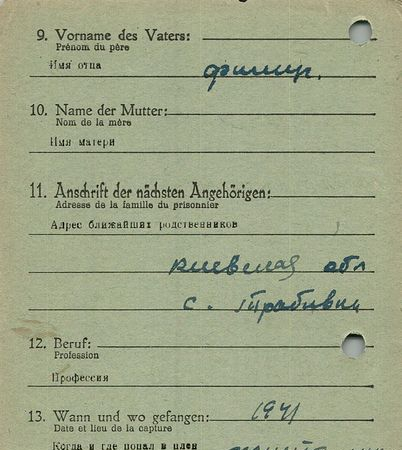 9. Vorname des Vaters:
Prénom du père
Имя отца
филип.
10. Name der Mutter:
Nom de la mère
Имя матери
11. Anschrift der nächsten Angehörigen:
Adresse de la famille du prisonnier
Адрес ближайших родственников
киевская обл
с.
12. Beruf:
Profession
Профессия
13. Wann und wo gefangen: 1941
Date et lieu de la capture
Когда и где попал в плен